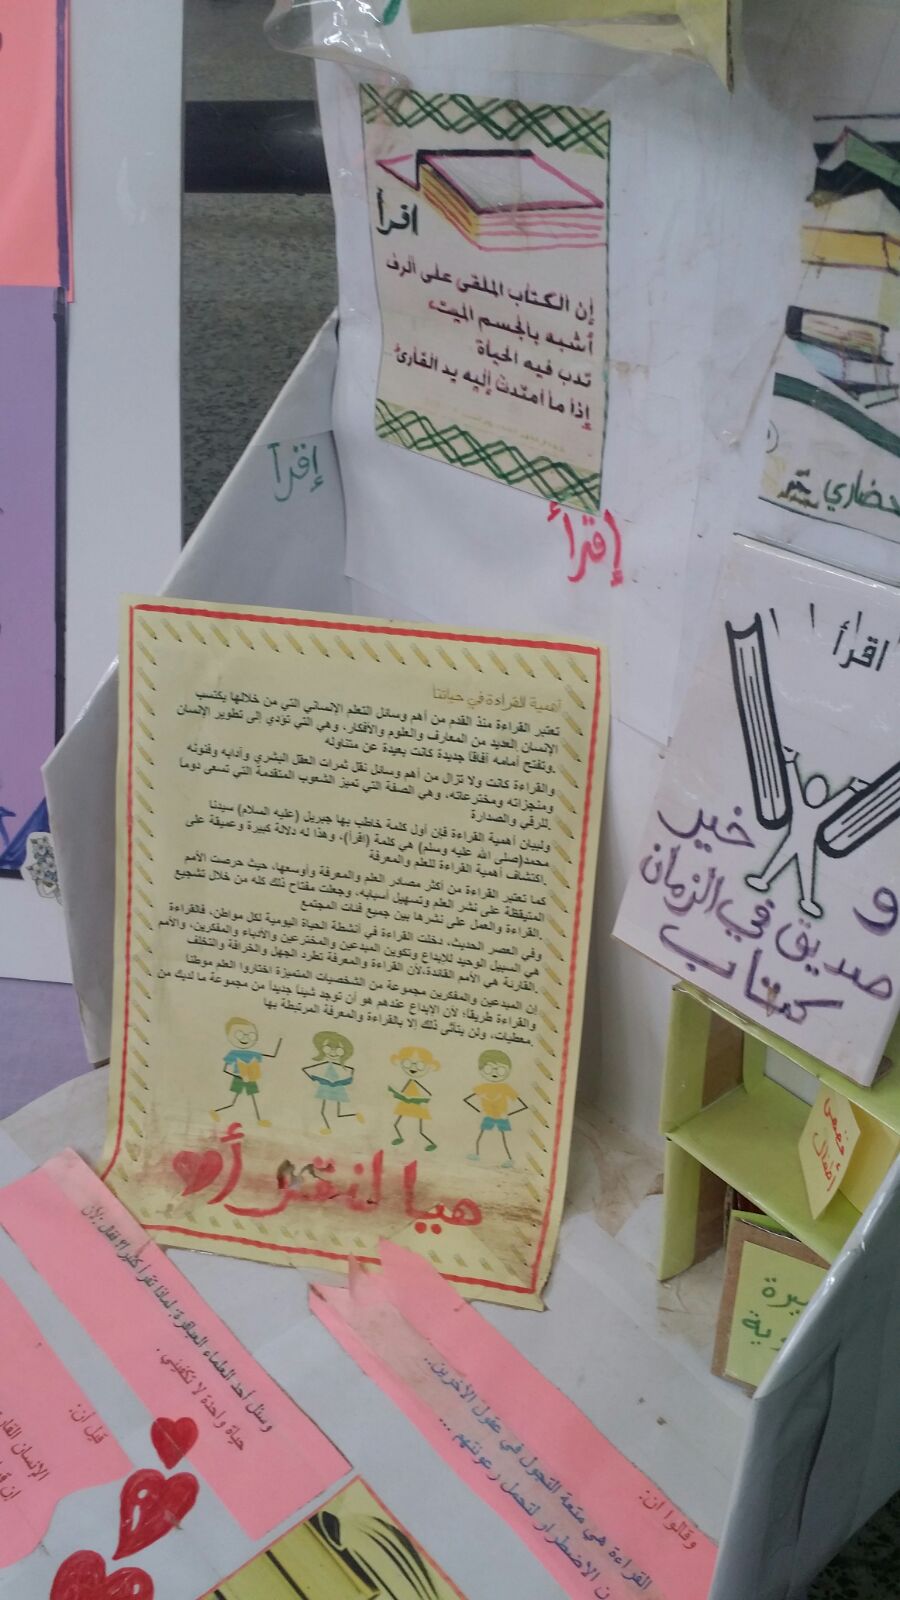 اقرأ
إن الكتاب الملقى على الرف
أشبه بالجسم الميت،
تدب فيه الحياة
إذا ما أمتدت إليه يد القارئ
إقرأ
إقرأ
حضاري
اقرأ
و
خير
صديق في الزمان
كتاب
أهمية القراءة في حياتنا
تعتبر القراءة منذ القدم من أهم وسائل التعلم الإنساني التي من خلالها يكتسب
الإنسان العديد من المعارف والعلوم والأفكار، وهي التي تؤدي إلى تطوير الإنسان
.وتفتح أمامه آفاقاً جديدة كانت بعيدة عن متناوله
والقراءة كانت ولا تزال من أهم وسائل نقل ثمرات العقل البشري وآدابه وفنونه
ومنجزاته ومخترعاته، وهي الصفة التي تميز الشعوب المتقدمة التي تسعى دوماً
.للرقي والصدارة
ولبيان أهمية القراءة فإن أول كلمة خاطب بها جبريل (عليه السلام) سيدنا
محمد(صلى الله عليه وسلم) هي كلمة (اقرأ)، وهذا له دلالة كبيرة وعميقة على
.اكتشاف أهمية القراءة للعلم والمعرفة
كما تعتبر القراءة من أكثر مصادر العلم والمعرفة وأوسعها، حيث حرصت الأمم
المتيقظة على نشر العلم وتسهيل أسبابه، وجعلت مفتاح ذلك كله من خلال تشجيع
.القراءة والعمل على نشرها بين جميع فئات المجتمع
وفي العصر الحديث، دخلت القراءة في أنشطة الحياة اليومية لكل مواطن، فالقراءة
هي السبيل الوحيد للإبداع وتكوين المبدعين والمخترعين والأدباء والمفكرين، والأمم
.القارئة هي الأمم القائدة،لأن القراءة والمعرفة تطرد الجهل والخرافة والتخلف
إن المبدعين والمفكرين مجموعة من الشخصيات المتميزة اختاروا العلم موطنا
والقراءة طريقا؛ لأن الإبداع عندهم هو أن توجد شيئاً جديداً من مجموعة ما لديك من
.معطيات، ولن يتأتى ذلك إلا بالقراءة والمعرفة المرتبطة بها
هيا لنقرأ
قصص
أطفال
وسئل أحد العلماء العباقرة: لماذا تقرأ كثيرا؟ فقال :لأن
حياة واحدة لا تكفيني .
قيل أن:
الإنسان
وقالوا ان:
القراءة هي متعة التجول في عقول الآخرين..
الاضطرار لتحمل رعونتهم ...